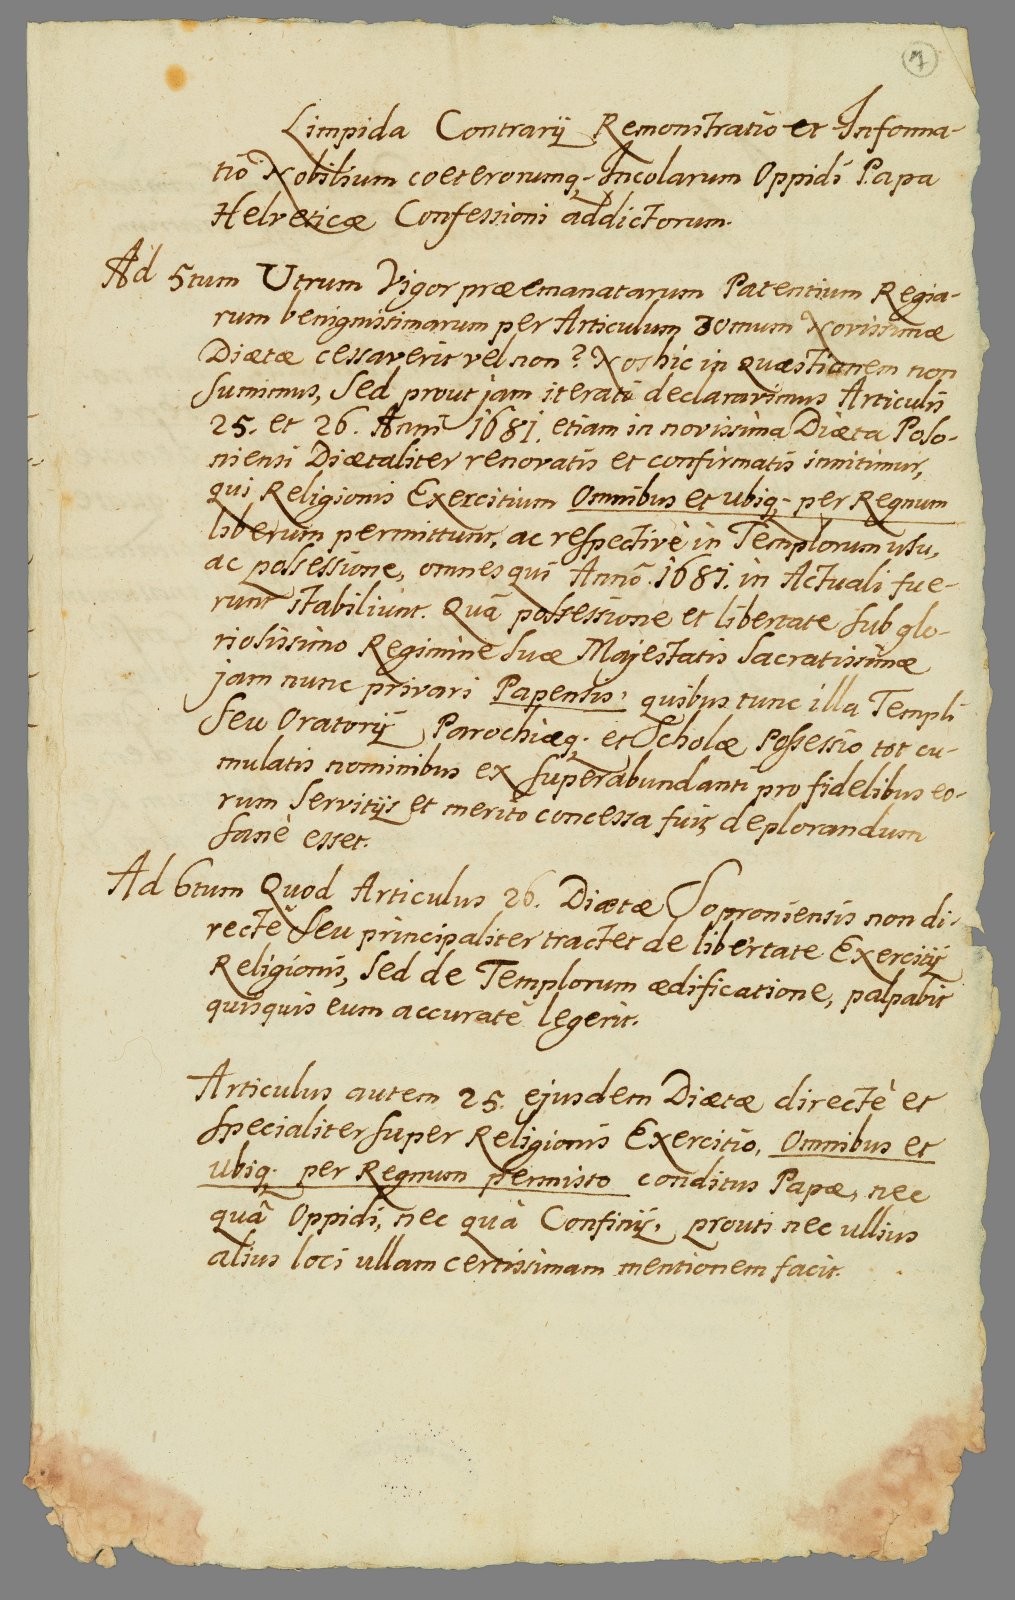 7
Limpida Contrarij Remonstratio et Informa-
tio Nobilium coeterorumq; Incolarum Oppidi Papa
Helveticæ Confessioni addictorum.
Ad 5tum Utrum Vigor præemanatarum Patentium Regia-
rum benignissimarum per Articulum 30mum Novissimæ
Diætæ cessaverit vel non? Nos hic in quæstionem non
sumimus, sed prout jam iteratò declaravimus Articulis
25. et 26. Anni 1681. etiam in novissima Diæta Poso-
niensi Diætaliter renovatis et confirmatis innitimur,
qui Religionis Exercitium Omnibus et ubiq; per Regnum
liberum permittunt, ac respectivè in Templorum usu,
ac possessione, omnes qui Annô 1681. in Actuali fue-
runt stabiliunt. Quâ possessione et libertate sub glo-
riosissimo Regimine suæ Majestatis Sacratissimæ
jam nunc privari Papensis, quibus tunc illa Templi
seu Oratorij Parochiæq; et Scholæ Possessio tot cu-
mulatis nominibus ex superabundanti pro fidelibus eo-
rum servitijs et merito concessa fuit deplorandum
sanè esset.
Ad 6tum Quod Articulus 26. Diætæ Soproniensis non di-
rectè seu principaliter tractet de libertate Exercitij
Religionis, sed de Templorum ædificatione, palpabit
quisquis eum accuratè legerit.
Articulus autem 25. ejusdem Diætæ directè et
specialiter super Religionis Exercitio, Omnibus et
ubiq; per Regnum permisso conditus Papæ, nec
quâ Oppidi, nec quà Confinij, prouti nec ullius
alius loci ullam certissimam mentionem facit.